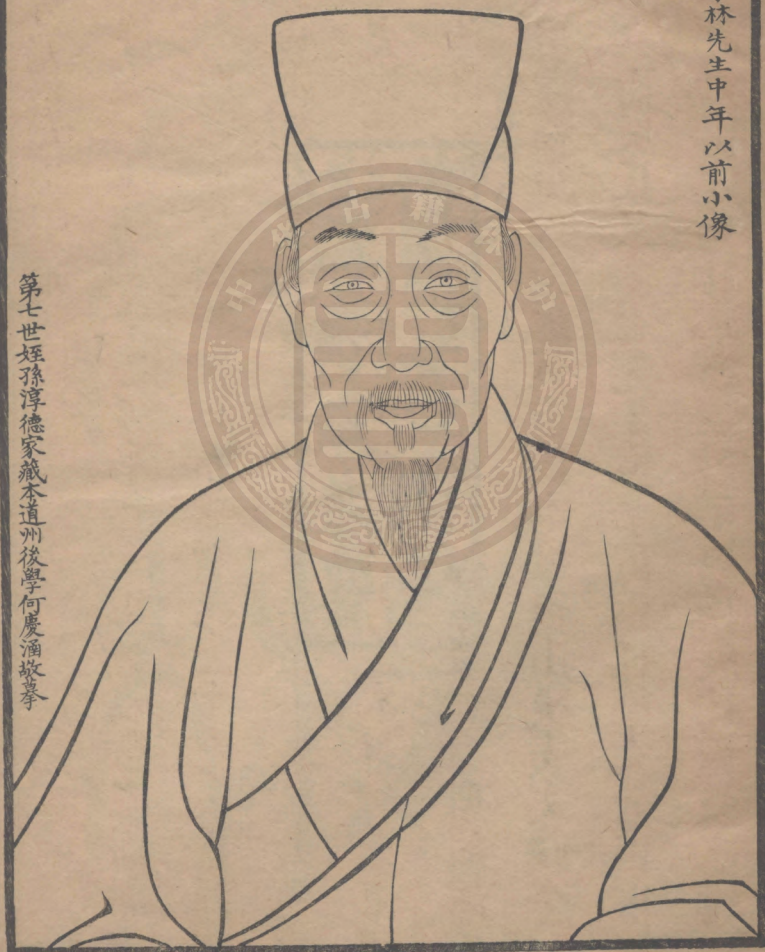 林先生中年以前小像
第七世姪孫淳德家藏本道州後學何慶涵敬摹